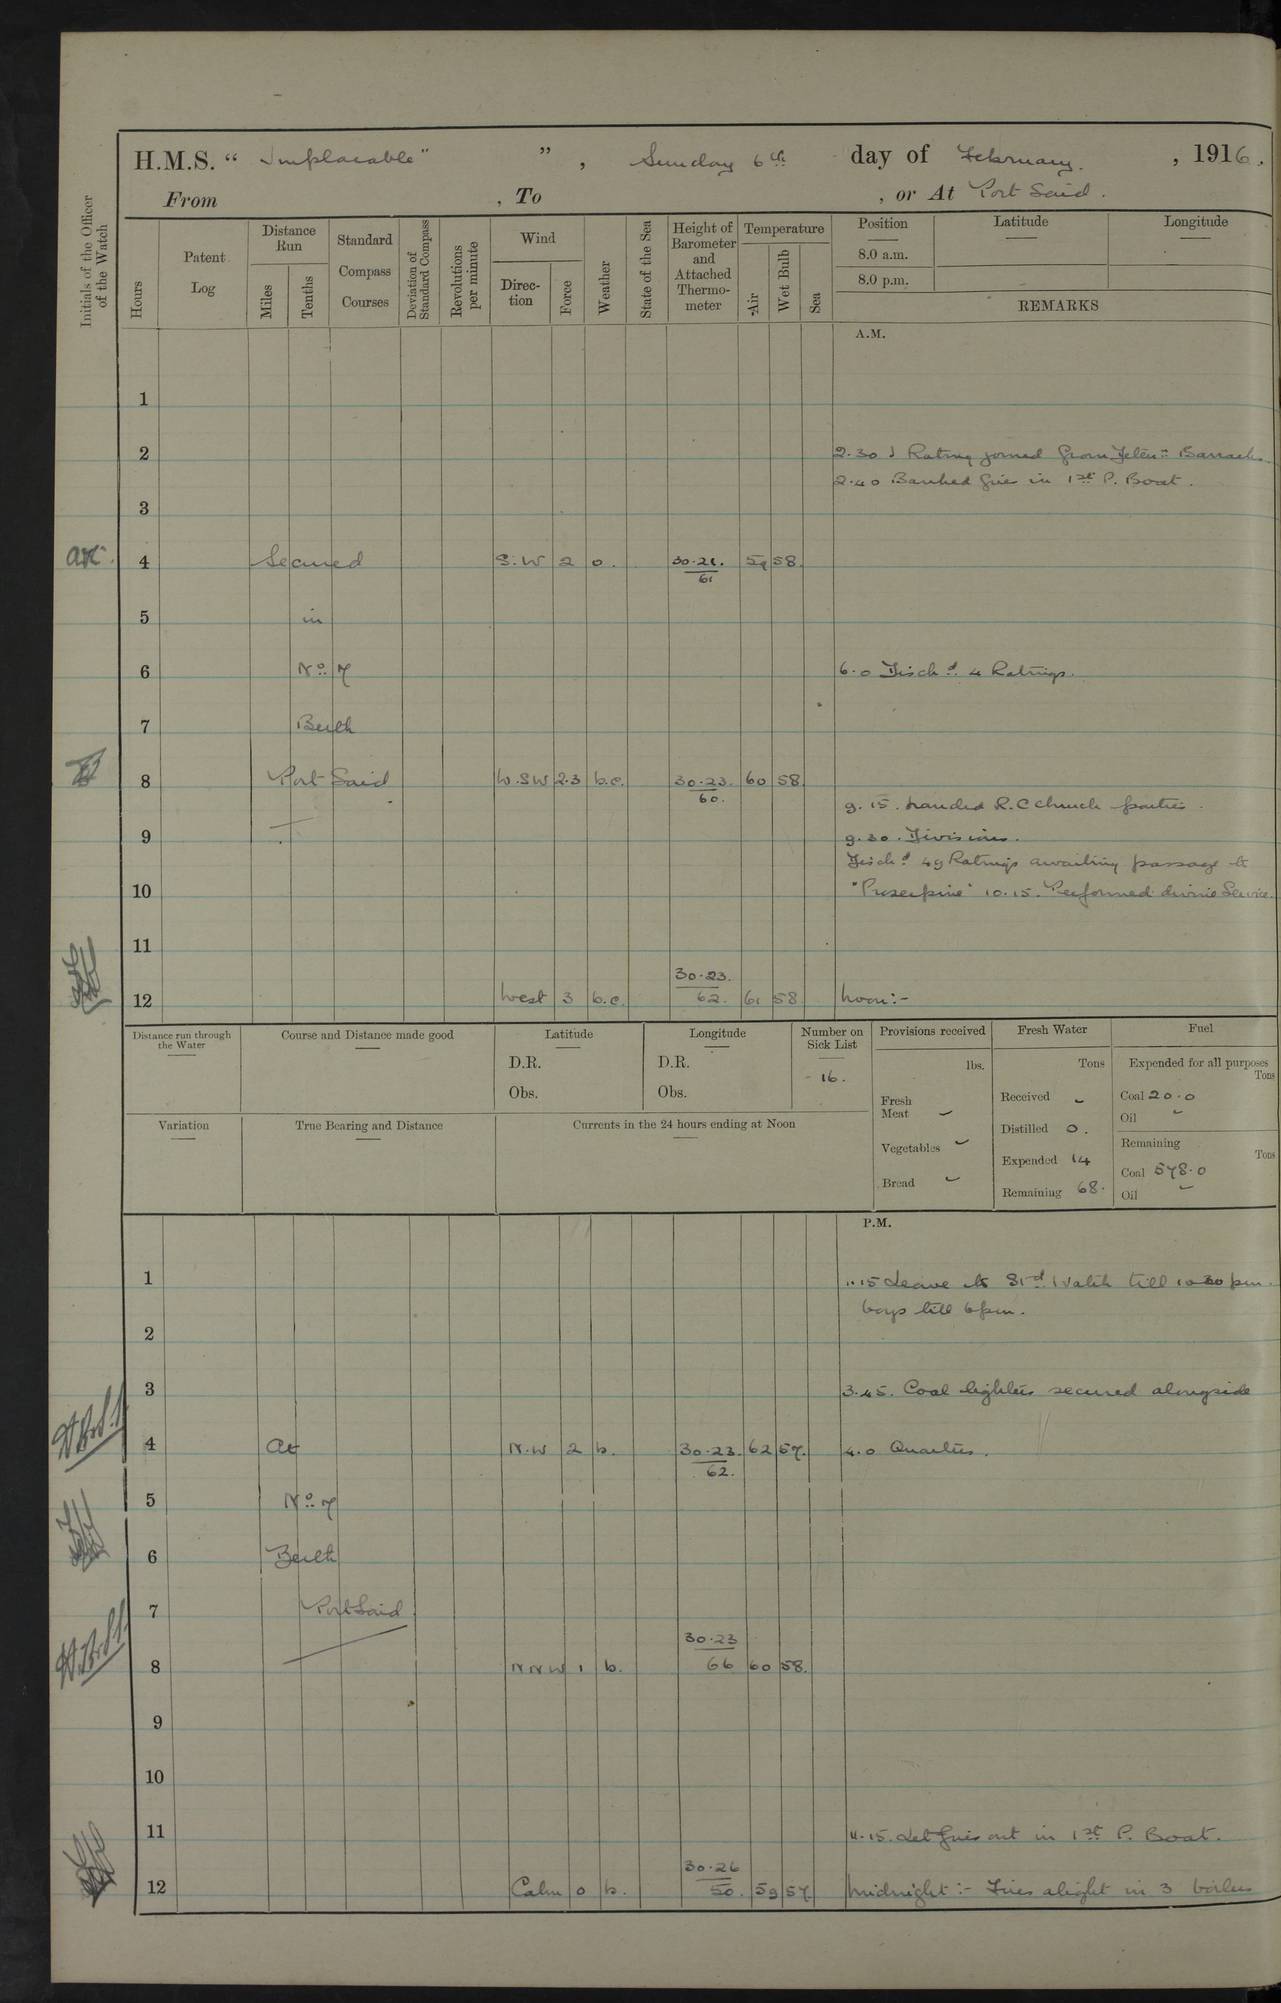 H.M.S. “ Implacable” ” , Sunday 6th day of February. , 1916.
From , To , or At Port Said.
Initials of the Officer of the Watch
Hours
Patent Log
Distance Run
Miles
Tenths
Standard Compass Courses
Deviation of Standard Compass
Revolutions per minute
Wind
Direction
Force
Weather
State of the Sea
Height of Barometer and Attached Thermometer
Temperature
Air
Wet Bulb
Sea
Position
8.0 a.m.
8.0 p.m.
Latitude
Longitude
REMARKS
A.M.
1
2 2.30 1 Rating joined from Deten:n Barracks
2.40 Banked fire in 1st P. Boat.
3
4 Secured S.W 2 o. 30.21. 61 59 58.
5 in
6 No. 7 6.0 Disch'd 4 Ratings.
7 Berth
8 Port Said W.SW 2.3 b.c. 30.23. 60. 60 58.
9.15. Landed R.C church parties.
9 9.30. Divisions.
Disch'd 49 Ratings awaiting passage to
10 "Proserpine" 10.15. Performed divine Service.
11
12 West 3 b.c. 30.23. 62. 61 58. Noon:-
Distance run through the Water
Course and Distance made good
Latitude
D.R.
Obs.
Longitude
D.R.
Obs.
Number on Sick List
16.
Provisions received
lbs.
Fresh Meat -
Vegetables -
Bread -
Fresh Water
Tons
Received -
Distilled 0.
Expended 14
Remaining 68.
Fuel
Expended for all purposes
Tons
Coal 20.0
Oil -
Remaining
Tons
Coal 578.0
Oil -
Variation
True Bearing and Distance
Currents in the 24 hours ending at Noon
P.M.
1 1.15 Leave to St'd Watch till 10.30 pm.
boys till 6pm.
2
3 3.45. Coal lighters secured alongside
4 At N.W 2 b. 30.23. 62. 62 57. 4.0 Quarters.
5 No. 7
6 Berth
7 Port Said
8 N N W 1 b. 30.23 66 60 58.
9
10
11 11.15. Let fires out in 1st P. Boat.
12 Calm 0 b. 30.26 50. 59 57 Midnight:- Fires alight in 3 boilers